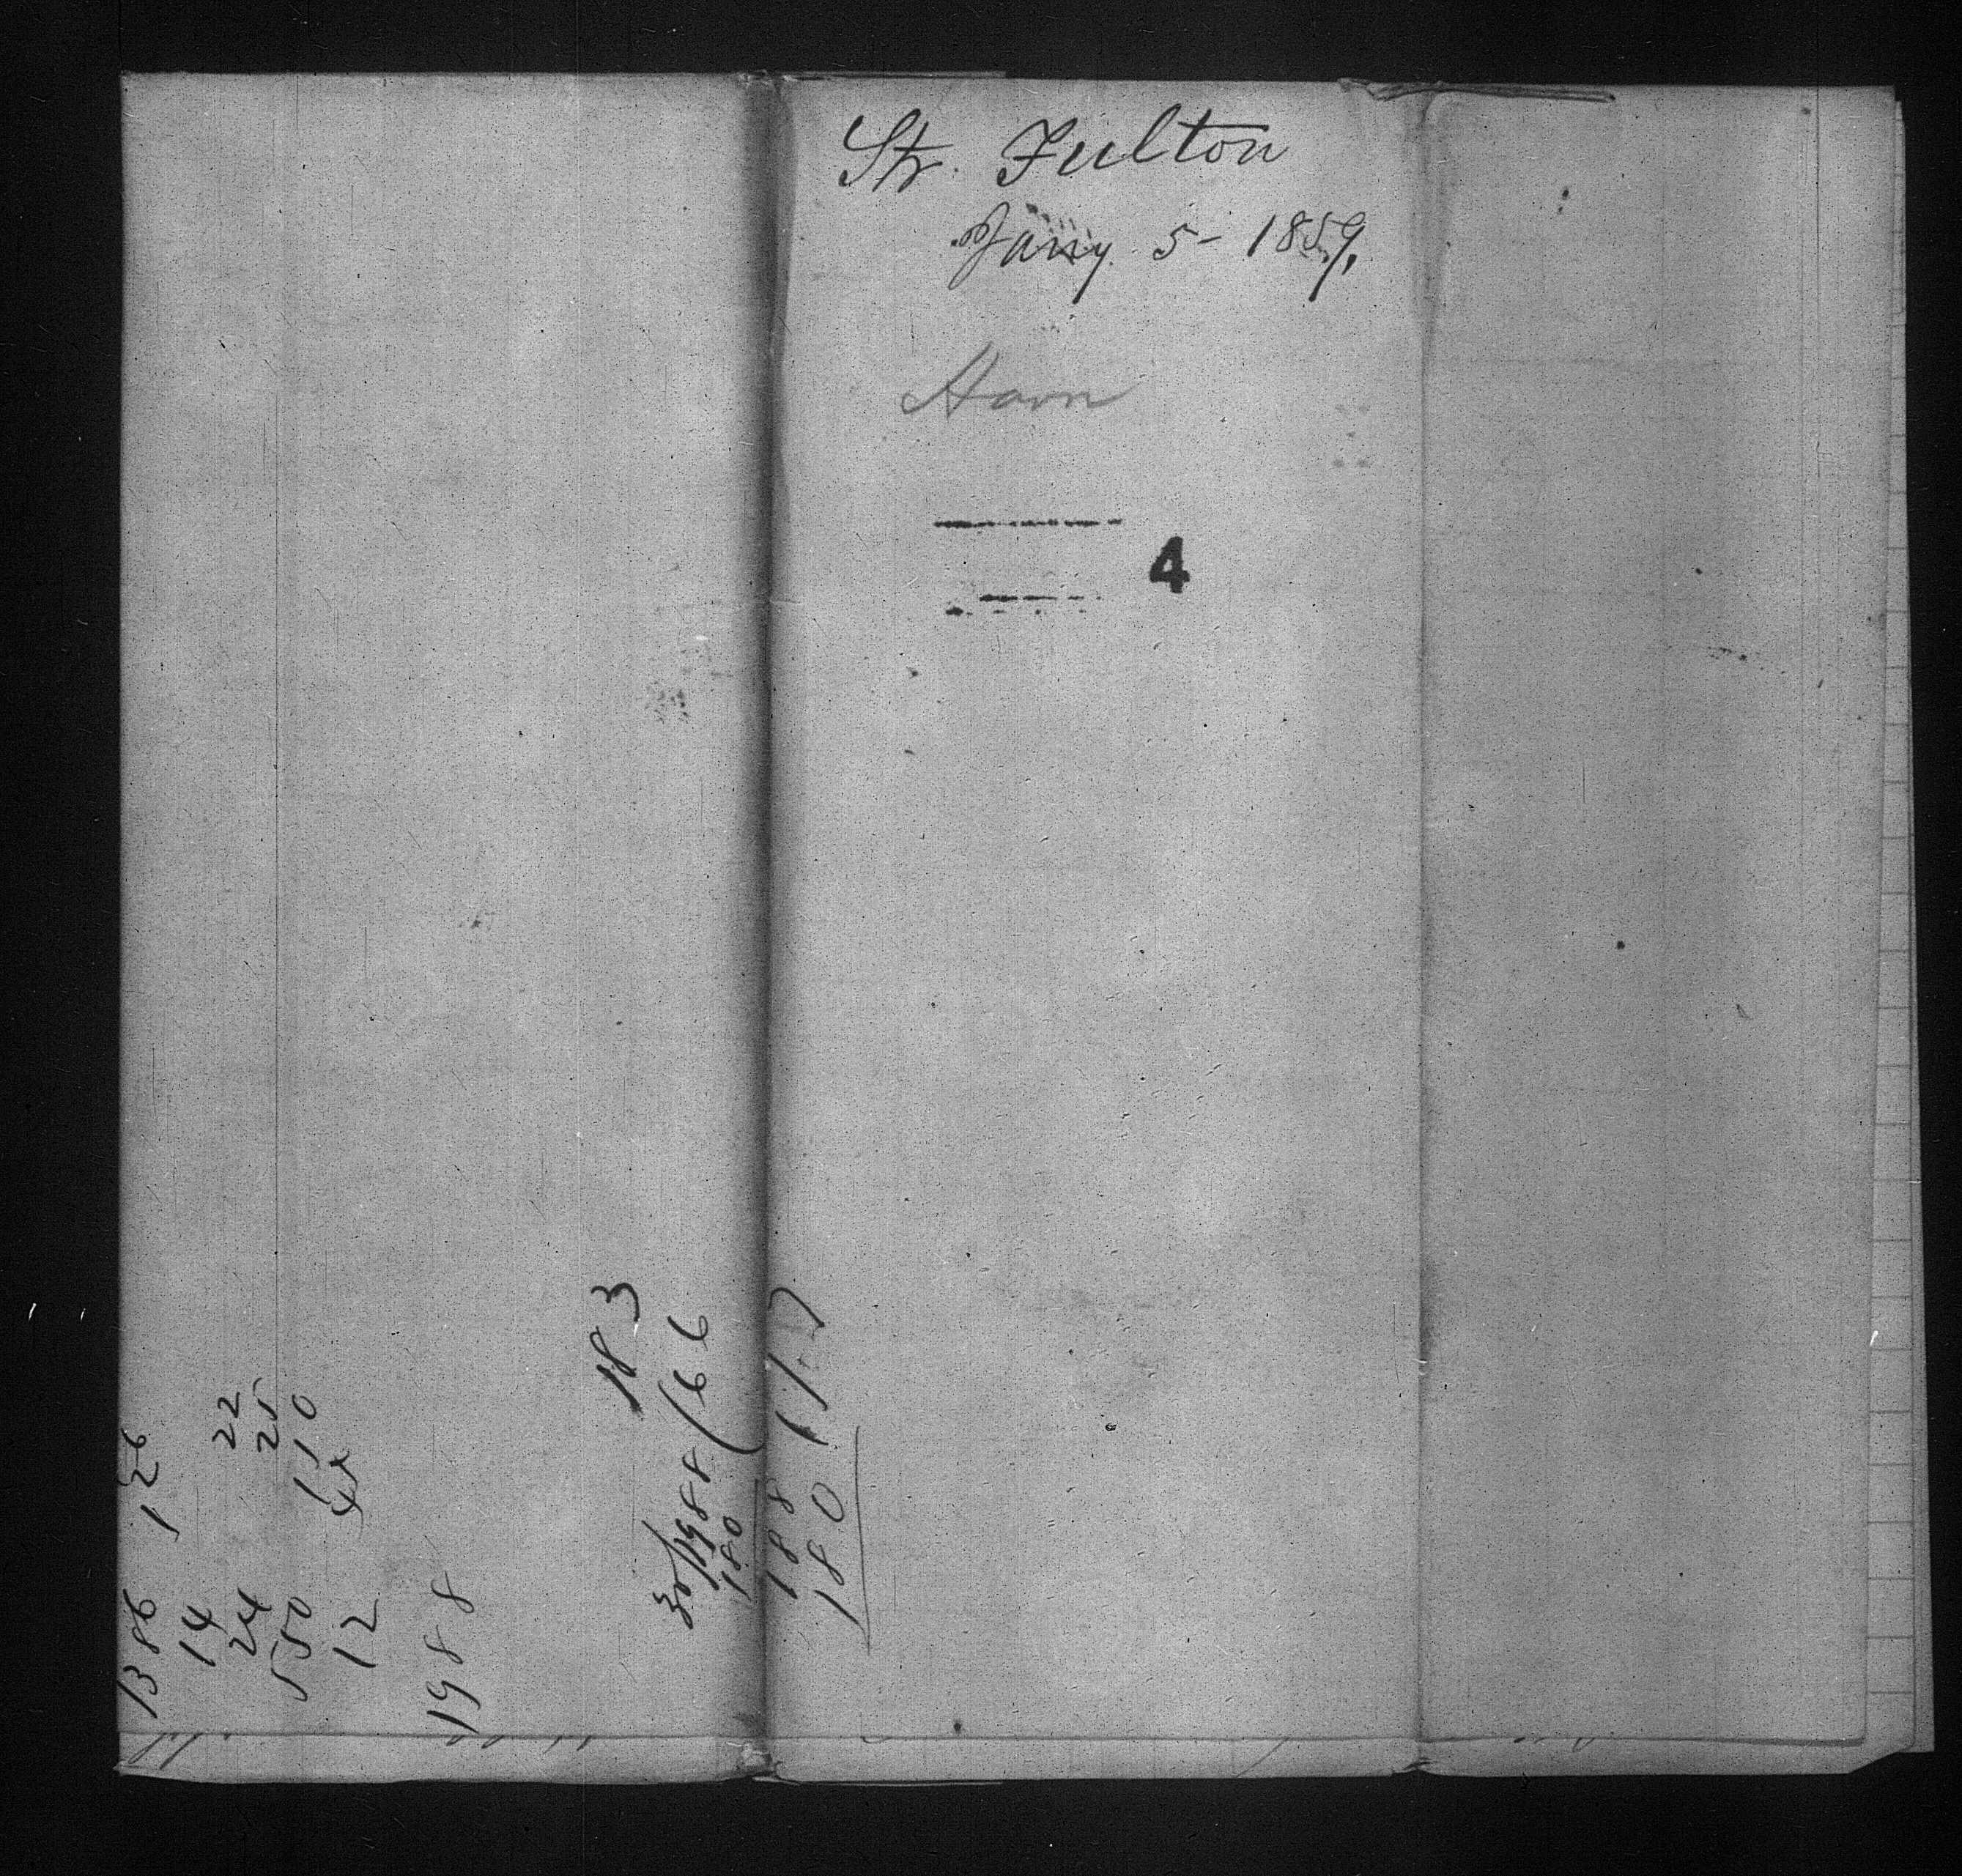 Str. Fulton
Jany. 5- 1859,
Harn
4
1386 126
14
24 22
550 25
12 110
44
1988
183
30/1988(66
180
188
180